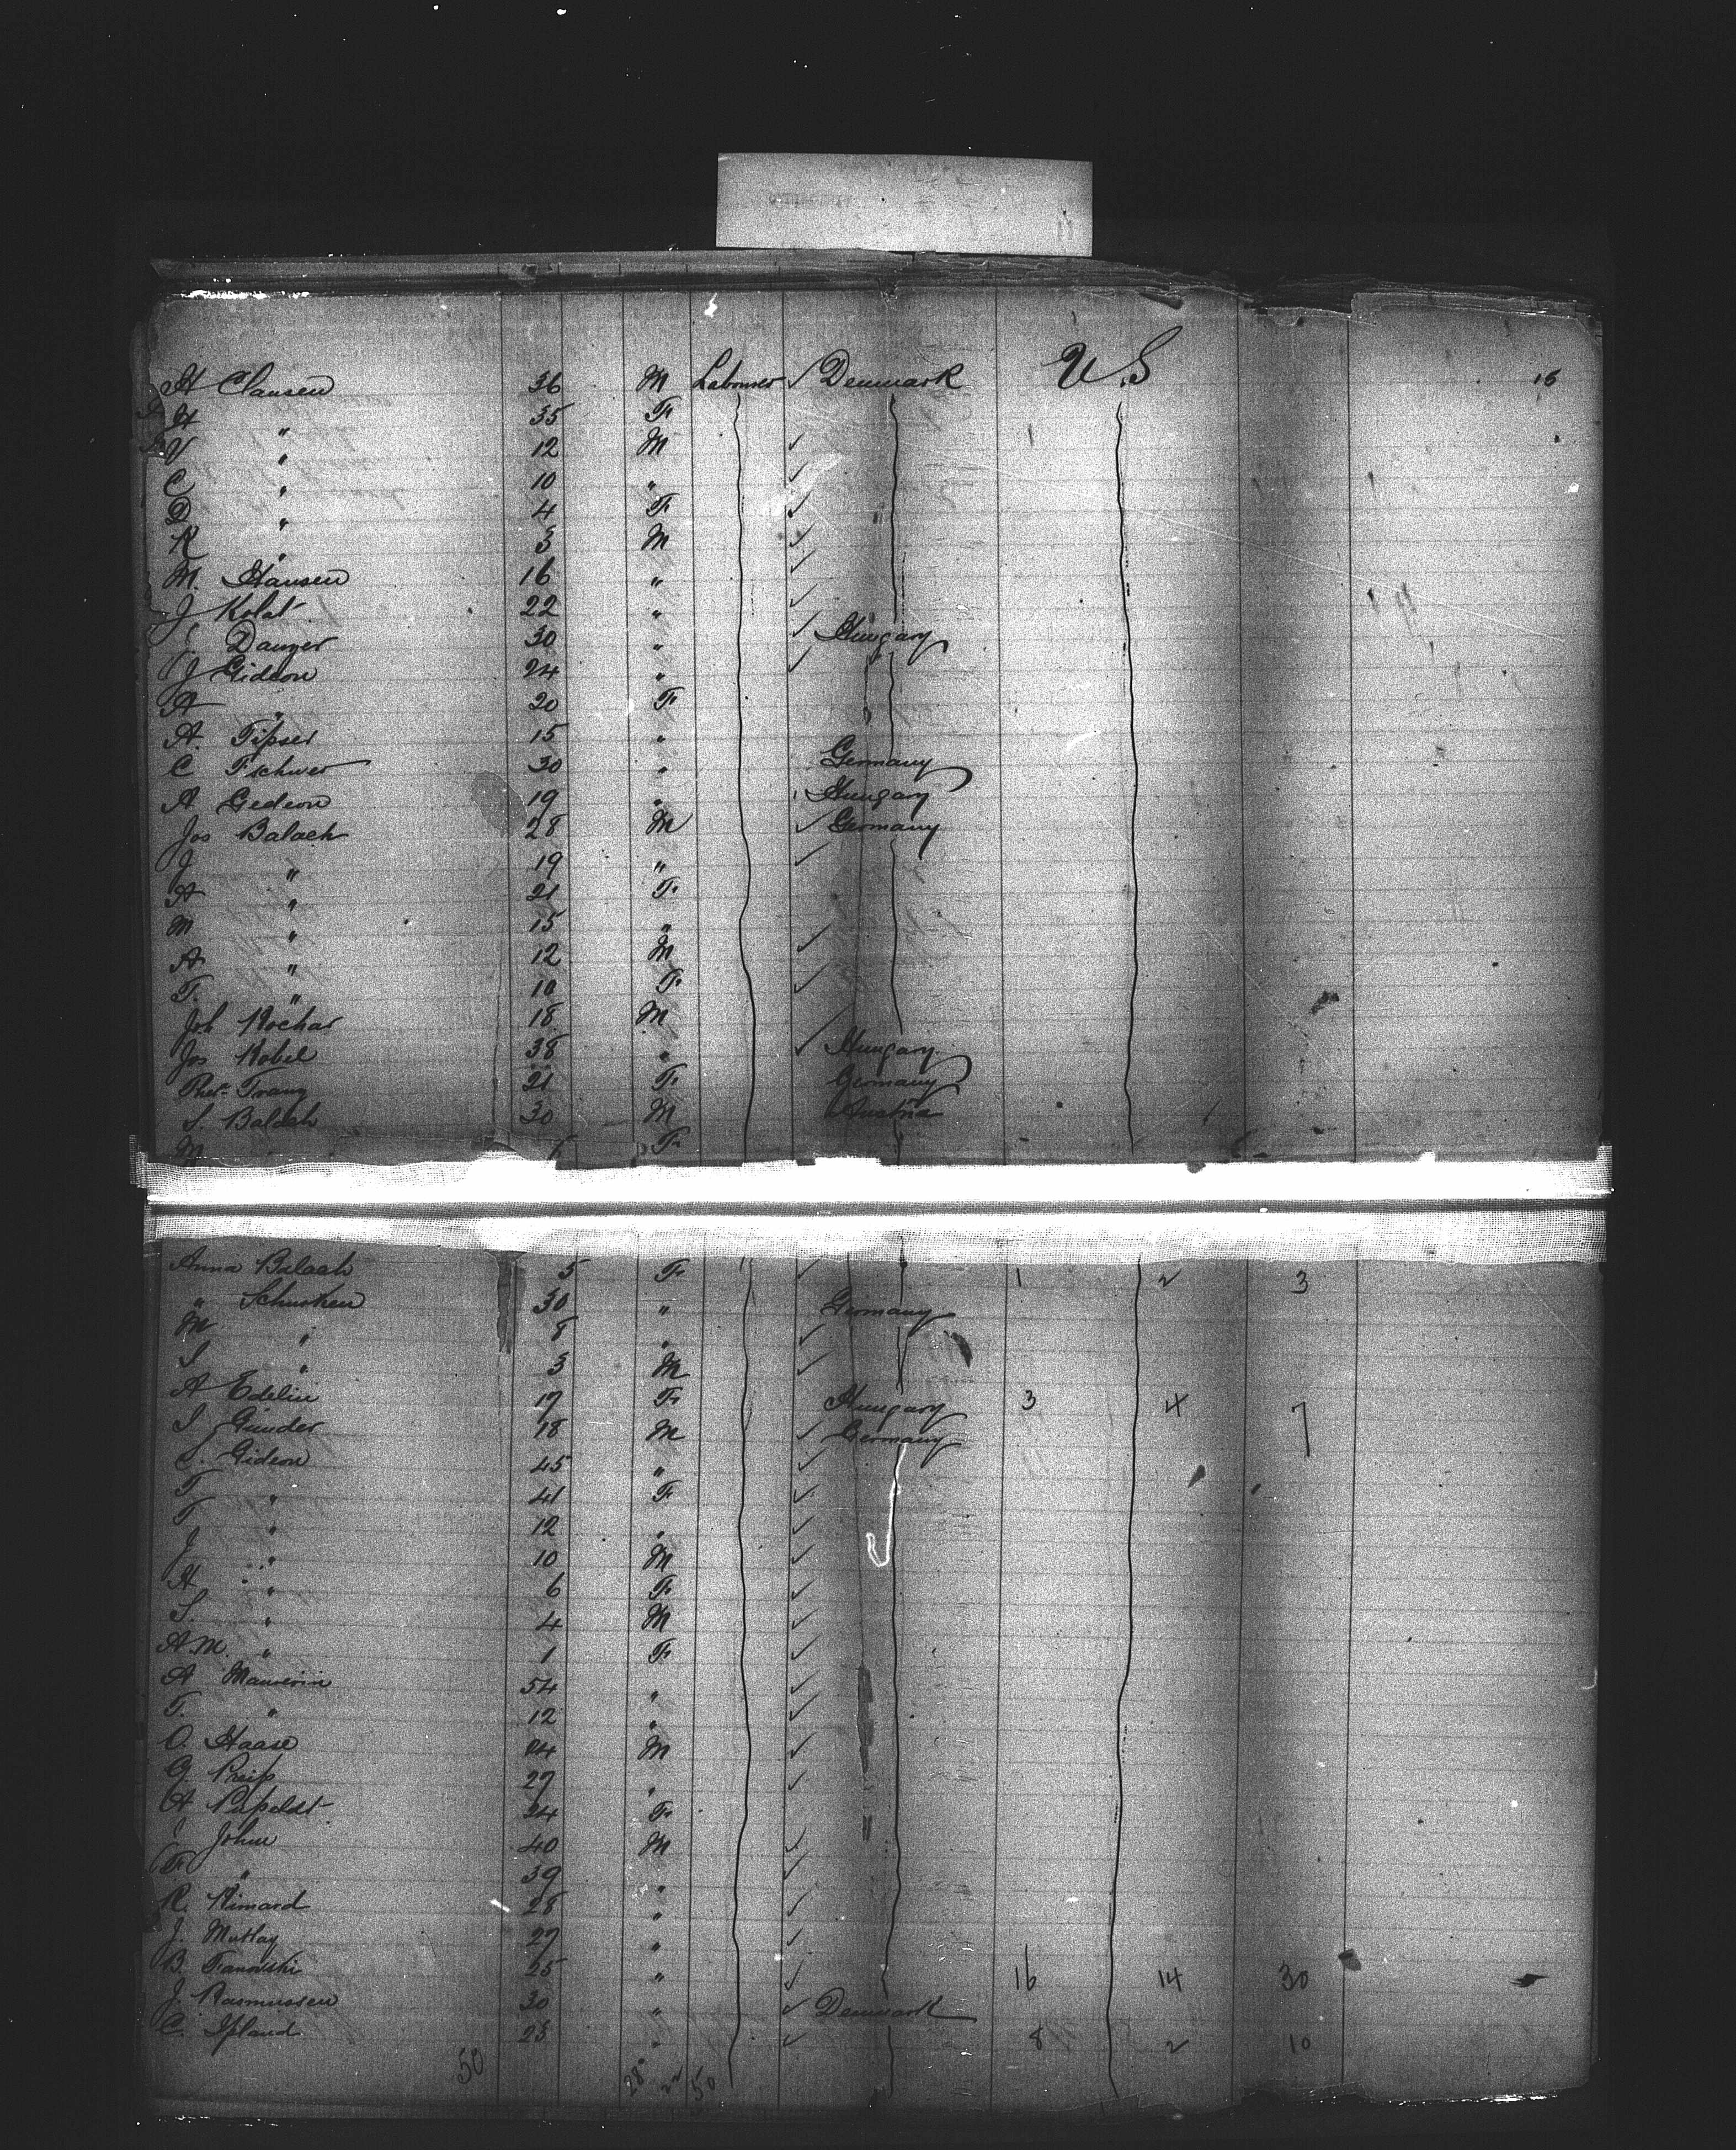 H Clausen 36 M Labourer ✓ Denmark U.S 15
H " 35 F
V " 12 M ✓
C " 10 " ✓
D " 4 F ✓
K " 3 M ✓
M. Hansen 16 " ✓
J. Kolat 22 " ✓
Danzer 30 " ✓ Hungary
J Gideon 24 " ✓
A " 20 F
A. Tipser 15 "
C 30 " Germany
A Gedeon 19 " Hungary
Jos Balach 28 M ✓ Germany
J " 19 " ✓
A " 21 F
M " 15 "
A " 12 M ✓
T. " 10 F ✓
Joh Kochar 18 M
Jos Kobel 38 " ✓ Hungary
21 F Germany
S. Balach 30 M Austria
M F
Anna Balach 5 F ✓ 1 2 3
" 30 " Germany
M " 8 " ✓
S " 3 M ✓
A Edelin 17 F Hungary 3 4 7
S Gunder 18 M ✓ Germany
S. Gideon 45 " ✓
T " 41 F ✓
T " 12 " ✓
J " 10 M ✓
A " 6 F ✓
S. " 4 M ✓
A.M. " 1 F ✓
A 54 " ✓
T. " 12 " ✓
O. Haase 24 M ✓
G Preip 27 " ✓
A 24 F
John 40 M ✓
F " 39 " ✓
R. Kimard 28 " ✓
J. Mutlay 27 " ✓
B. 25 " ✓ 16 14 30
J. Rasmussen 30 " ✓ Denmark
C. Ipland 23 " ✓ 8 2 10
50 28 22 50